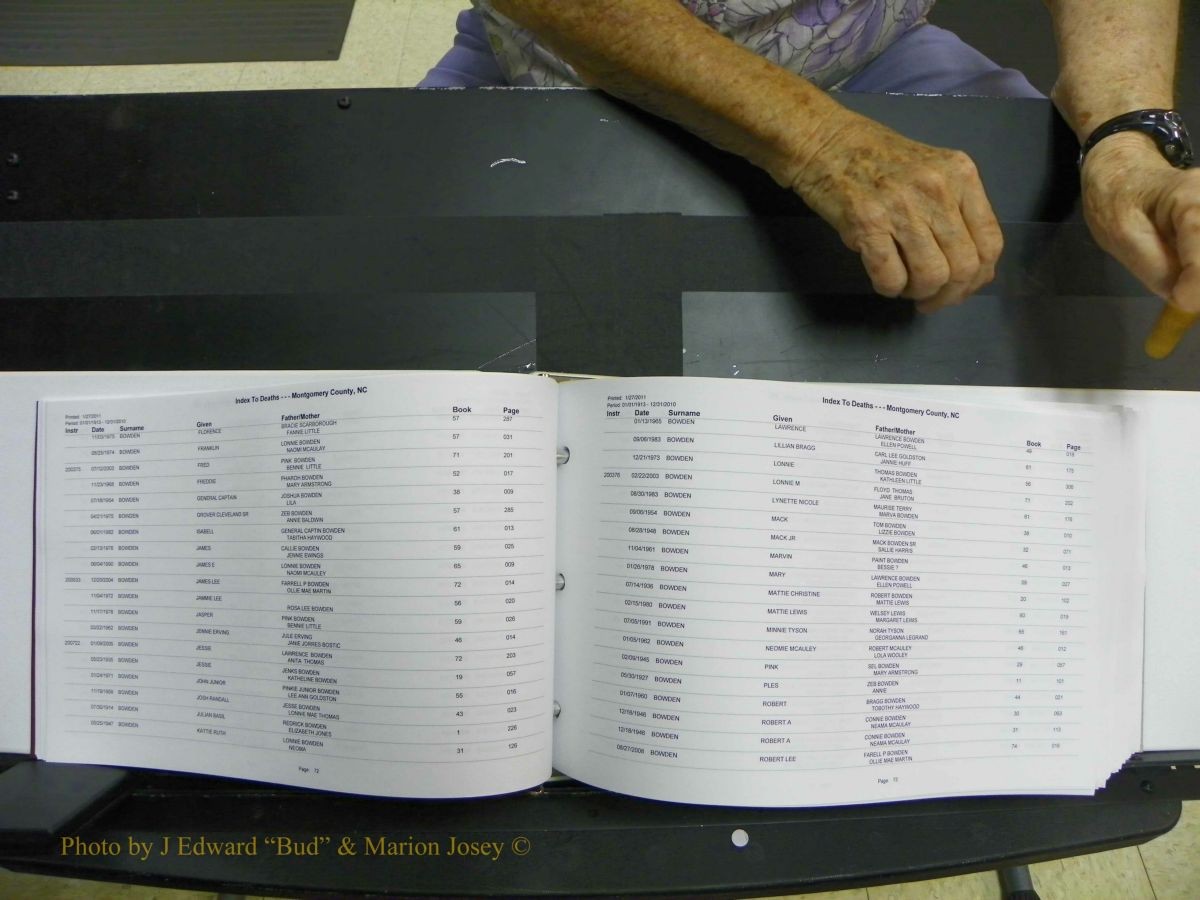 Index To Deaths - - - Montgomery County, NC
Printed: 1/27/2011
Period: 01/01/1913 - 12/31/2010
Instr Date Surname Given Father/Mother Book Page
11/03/1975 BOWDEN FLORENCE BRACIE SCARBOROUGH 57 287
FANNIE LITTLE
BOWDEN FRANKLIN LONNIE BOWDEN 57 031
NAOMI MCAULAY
200375 07/12/2003 BOWDEN FRED PINK BOWDEN 71 201
BENNIE LITTLE
11/23/1968 BOWDEN FREDDIE PHAROH BOWDEN 52 017
MARY ARMSTRONG
07/18/1954 BOWDEN GENERAL CAPTAIN JOSHUA BOWDEN 38 009
LILA
04/21/1975 BOWDEN GROVER CLEVELAND SR ZEB BOWDEN 57 285
ANNIE BALDWIN
BOWDEN ISABELL GENERAL CAPTIN BOWDEN 61 013
TABITHA HAYWOOD
BOWDEN JAMES CALLIE BOWDEN 59 025
JENNIE EWINGS
BOWDEN JAMES E LONNIE BOWDEN 65 009
NAOMI MCAULEY
BOWDEN JAMES LEE FARRELL P BOWDEN 72 014
OLLIE MAE MARTIN
BOWDEN JAMMIE LEE 56 020
ROSA LEE BOWDEN
BOWDEN JASPER PINK BOWDEN 59 026
BENNIE LITTLE
BOWDEN JENNIE ERVING JULE ERVING 46 014
JANIE JORRES BOSTIC
200722 BOWDEN JESSIE LAWRENCE BOWDEN 72 203
ANITA THOMAS
BOWDEN JESSIE JENKS BOWDEN 19 057
KATHELINE BOWDEN
01/24/1971 BOWDEN JOHN JUNIOR PINKIE JUNIOR BOWDEN 55 016
LEE ANN GOLDSTON
BOWDEN JOSH RANDALL JESSE BOWDEN 43 023
LONNIE MAE THOMAS
BOWDEN JULIAN BASIL REDRICK BOWDEN 1 226
ELIZABETH JONES
BOWDEN KATTIE RUTH LONNIE BOWDEN 31 126
NEOMA
Page: 72
Index To Deaths - - - Montgomery County, NC
Printed: 1/27/2011
Period: 01/01/1913 - 12/31/2010
Instr Date Surname Given Father/Mother Book Page
01/13/1965 BOWDEN LAWRENCE LAWRENCE BOWDEN 49 018
ELLEN POWELL
09/06/1983 BOWDEN LILLIAN BRAGG CARL LEE GOLDSTON 61 175
JANNIE HUFF
12/21/1973 BOWDEN LONNIE THOMAS BOWDEN 56
KATHLEEN LITTLE
200376 02/22/2003 BOWDEN LONNIE M FLOYD THOMAS 71 202
JANE BRUTON
08/30/1983 BOWDEN LYNETTE NICOLE MAURISE TERRY 61 176
MARVA BOWDEN
09/06/1954 BOWDEN MACK TOM BOWDEN 38 010
LIZZIE BOWDEN
08/28/1948 BOWDEN MACK JR MACK BOWDEN SR 32 071
SALLIE HARRIS
11/04/1961 BOWDEN MARVIN PAINT BOWDEN 46 013
BESSIE ?
01/26/1978 BOWDEN MARY LAWRENCE BOWDEN 59 027
ELLEN POWELL
07/14/1936 BOWDEN MATTIE CHRISTINE ROBERT BOWDEN 20 102
MATTIE LEWIS
02/15/1980 BOWDEN MATTIE LEWIS WELSEY LEWIS 60 019
MARGARET LEWIS
07/05/1991 BOWDEN MINNIE TYSON NORAH TYSON 65 161
GEORGANNA LEGRAND
01/05/1962 BOWDEN NEOMIE MCAULEY ROBERT MCAULEY 46 012
LOLA WOOLEY
02/09/1945 BOWDEN PINK SEL BOWDEN 29 057
MARY ARMSTRONG
05/30/1927 BOWDEN PLES ZEB BOWDEN 11 101
ANNIE
01/07/1960 BOWDEN ROBERT BRAGG BOWDEN 44 021
TOBOTHY HAYWOOD
12/18/1946 BOWDEN ROBERT A CONNIE BOWDEN 30 063
NEAMA MCAULAY
12/18/1946 BOWDEN ROBERT A CONNIE BOWDEN 31 113
NEAMA MCAULAY
08/27/2006 BOWDEN ROBERT LEE FARELL P BOWDEN 74 016
OLLIE MAE MARTIN
Page: 73
Photo by J Edward “Bud” & Marion Josey ©